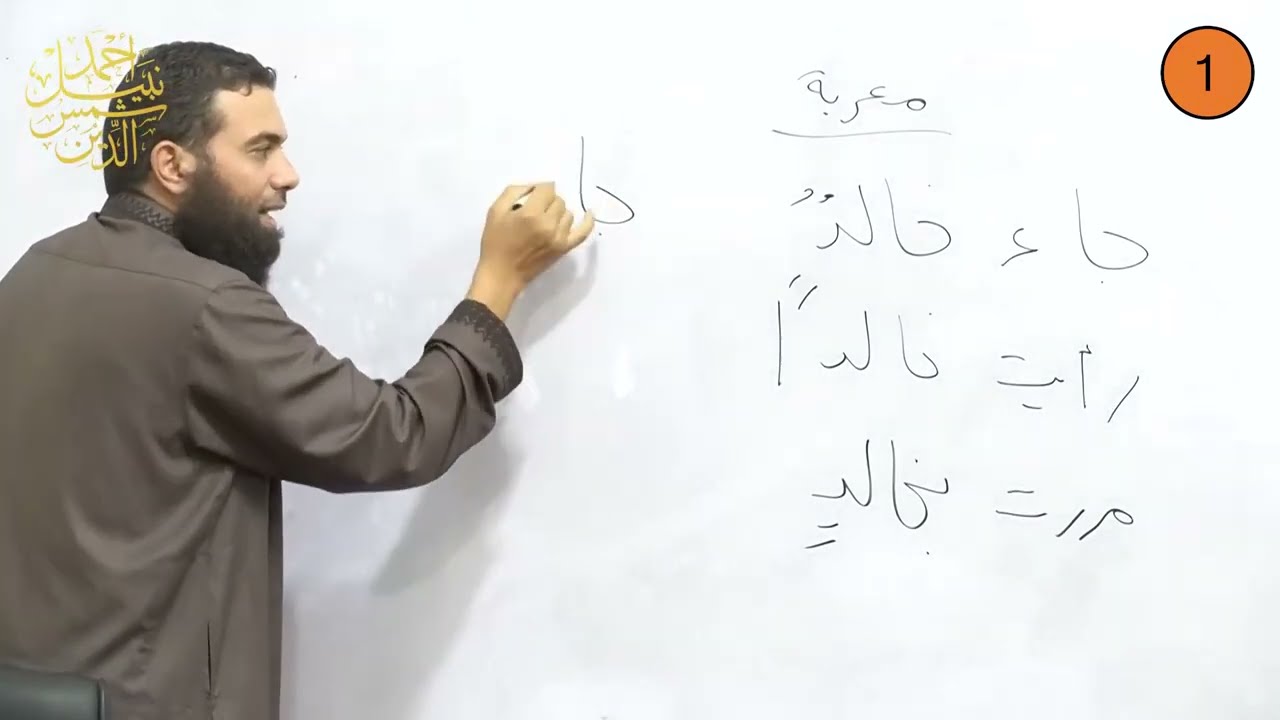 أحمد
نبيل
شمس
الدين
1
معربة
جاء خالدٌ
رأيت خالداً
مررت بخالدٍ
جا